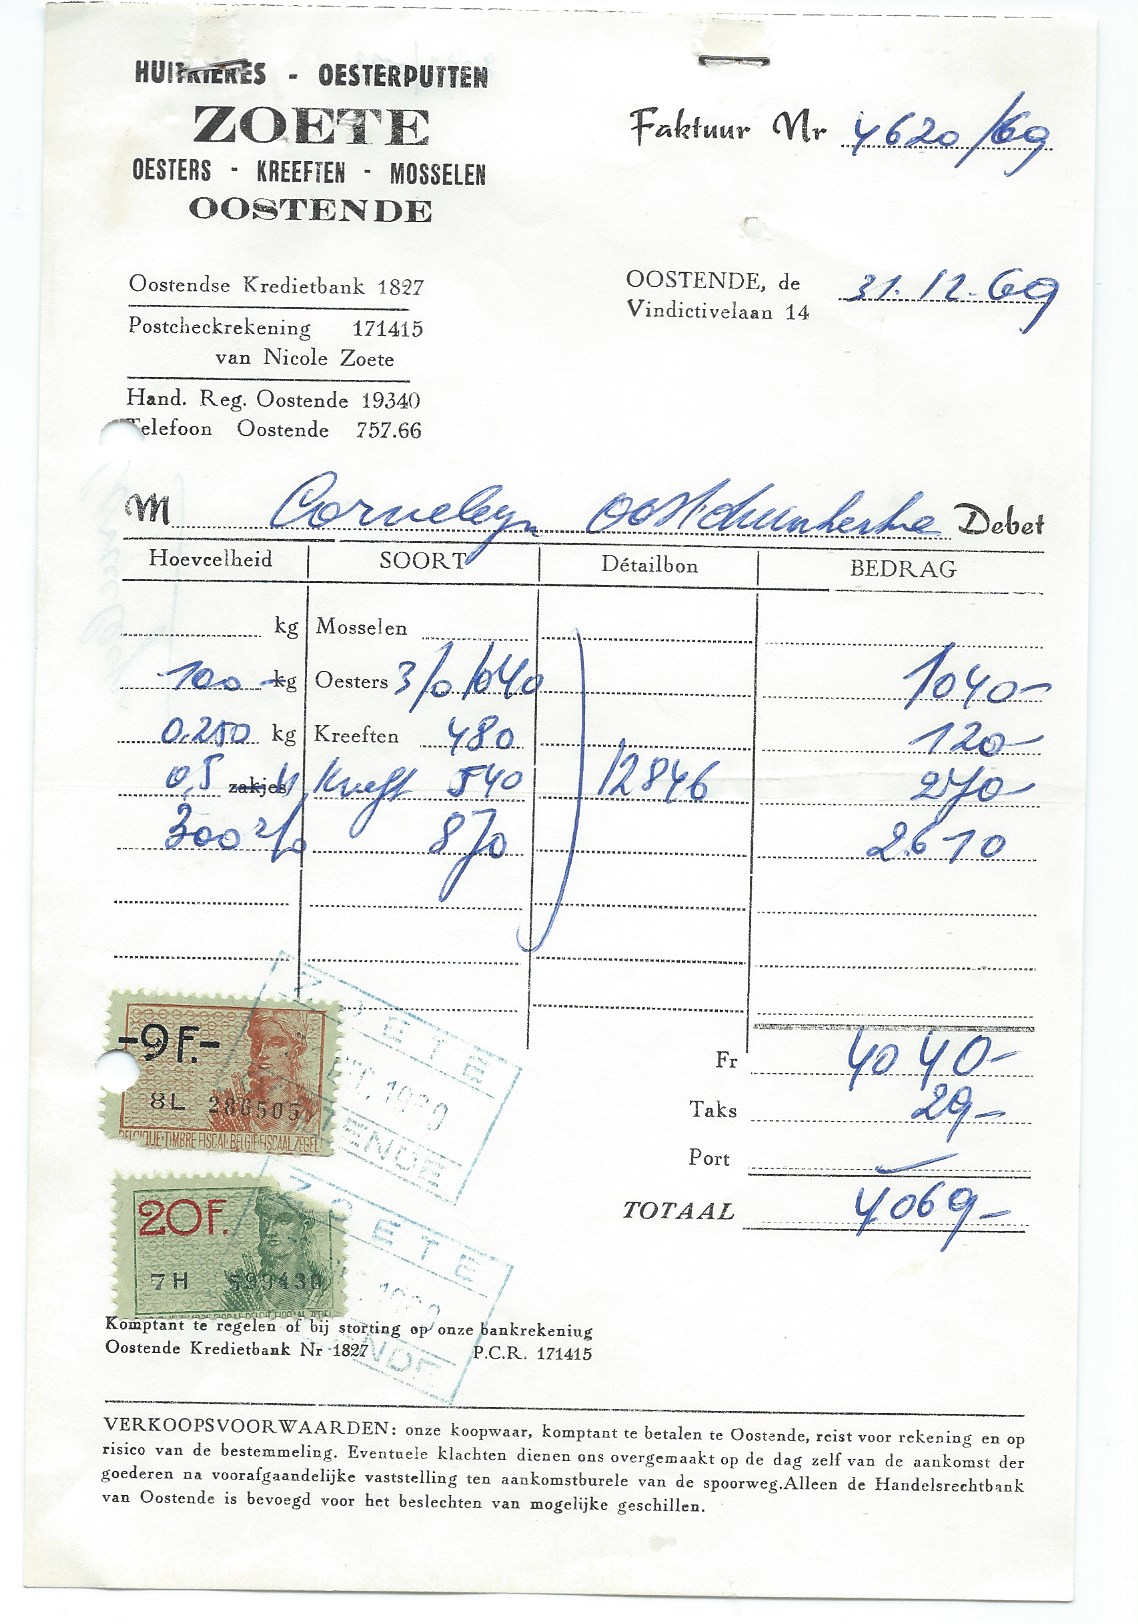 HUITRIERES - OESTERPUTTEN
ZOETE
OESTERS - KREEFTEN - MOSSELEN
OOSTENDE
Faktuur Nr 4620/69
Oostendse Kredietbank 1827
Postcheckrekening 171415
van Nicole Zoete
Hand. Reg. Oostende 19340
Telefoon Oostende 757.66
OOSTENDE, de 31.12.69
Vindictivelaan 14
M Corneleyn Debet
Hoeveelheid SOORT Détailbon BEDRAG
kg Mosselen
100 kg Oesters 3/0 1040 1040-
0.250 kg Kreeften 480 120-
0,5 zakjes Kreeft 540 12846 270-
300 2/0 870 2.610
Fr 4040-
Taks 29-
Port
TOTAAL 4069-
-9F.-
8L 286505
BELGIQUE·TIMBRE FISCAL·BELGIE·FISCAALZEGEL
ZOETE
20F.
7H 599430
ZOETE
Komptant te regelen of bij storting op onze bankrekening
Oostende Kredietbank Nr 1827 P.C.R. 171415
VERKOOPSVOORWAARDEN: onze koopwaar, komptant te betalen te Oostende, reist voor rekening en op
risico van de bestemmeling. Eventuele klachten dienen ons overgemaakt op de dag zelf van de aankomst der
goederen na voorafgaandelijke vaststelling ten aankomstburele van de spoorweg.Alleen de Handelsrechtbank
van Oostende is bevoegd voor het beslechten van mogelijke geschillen.